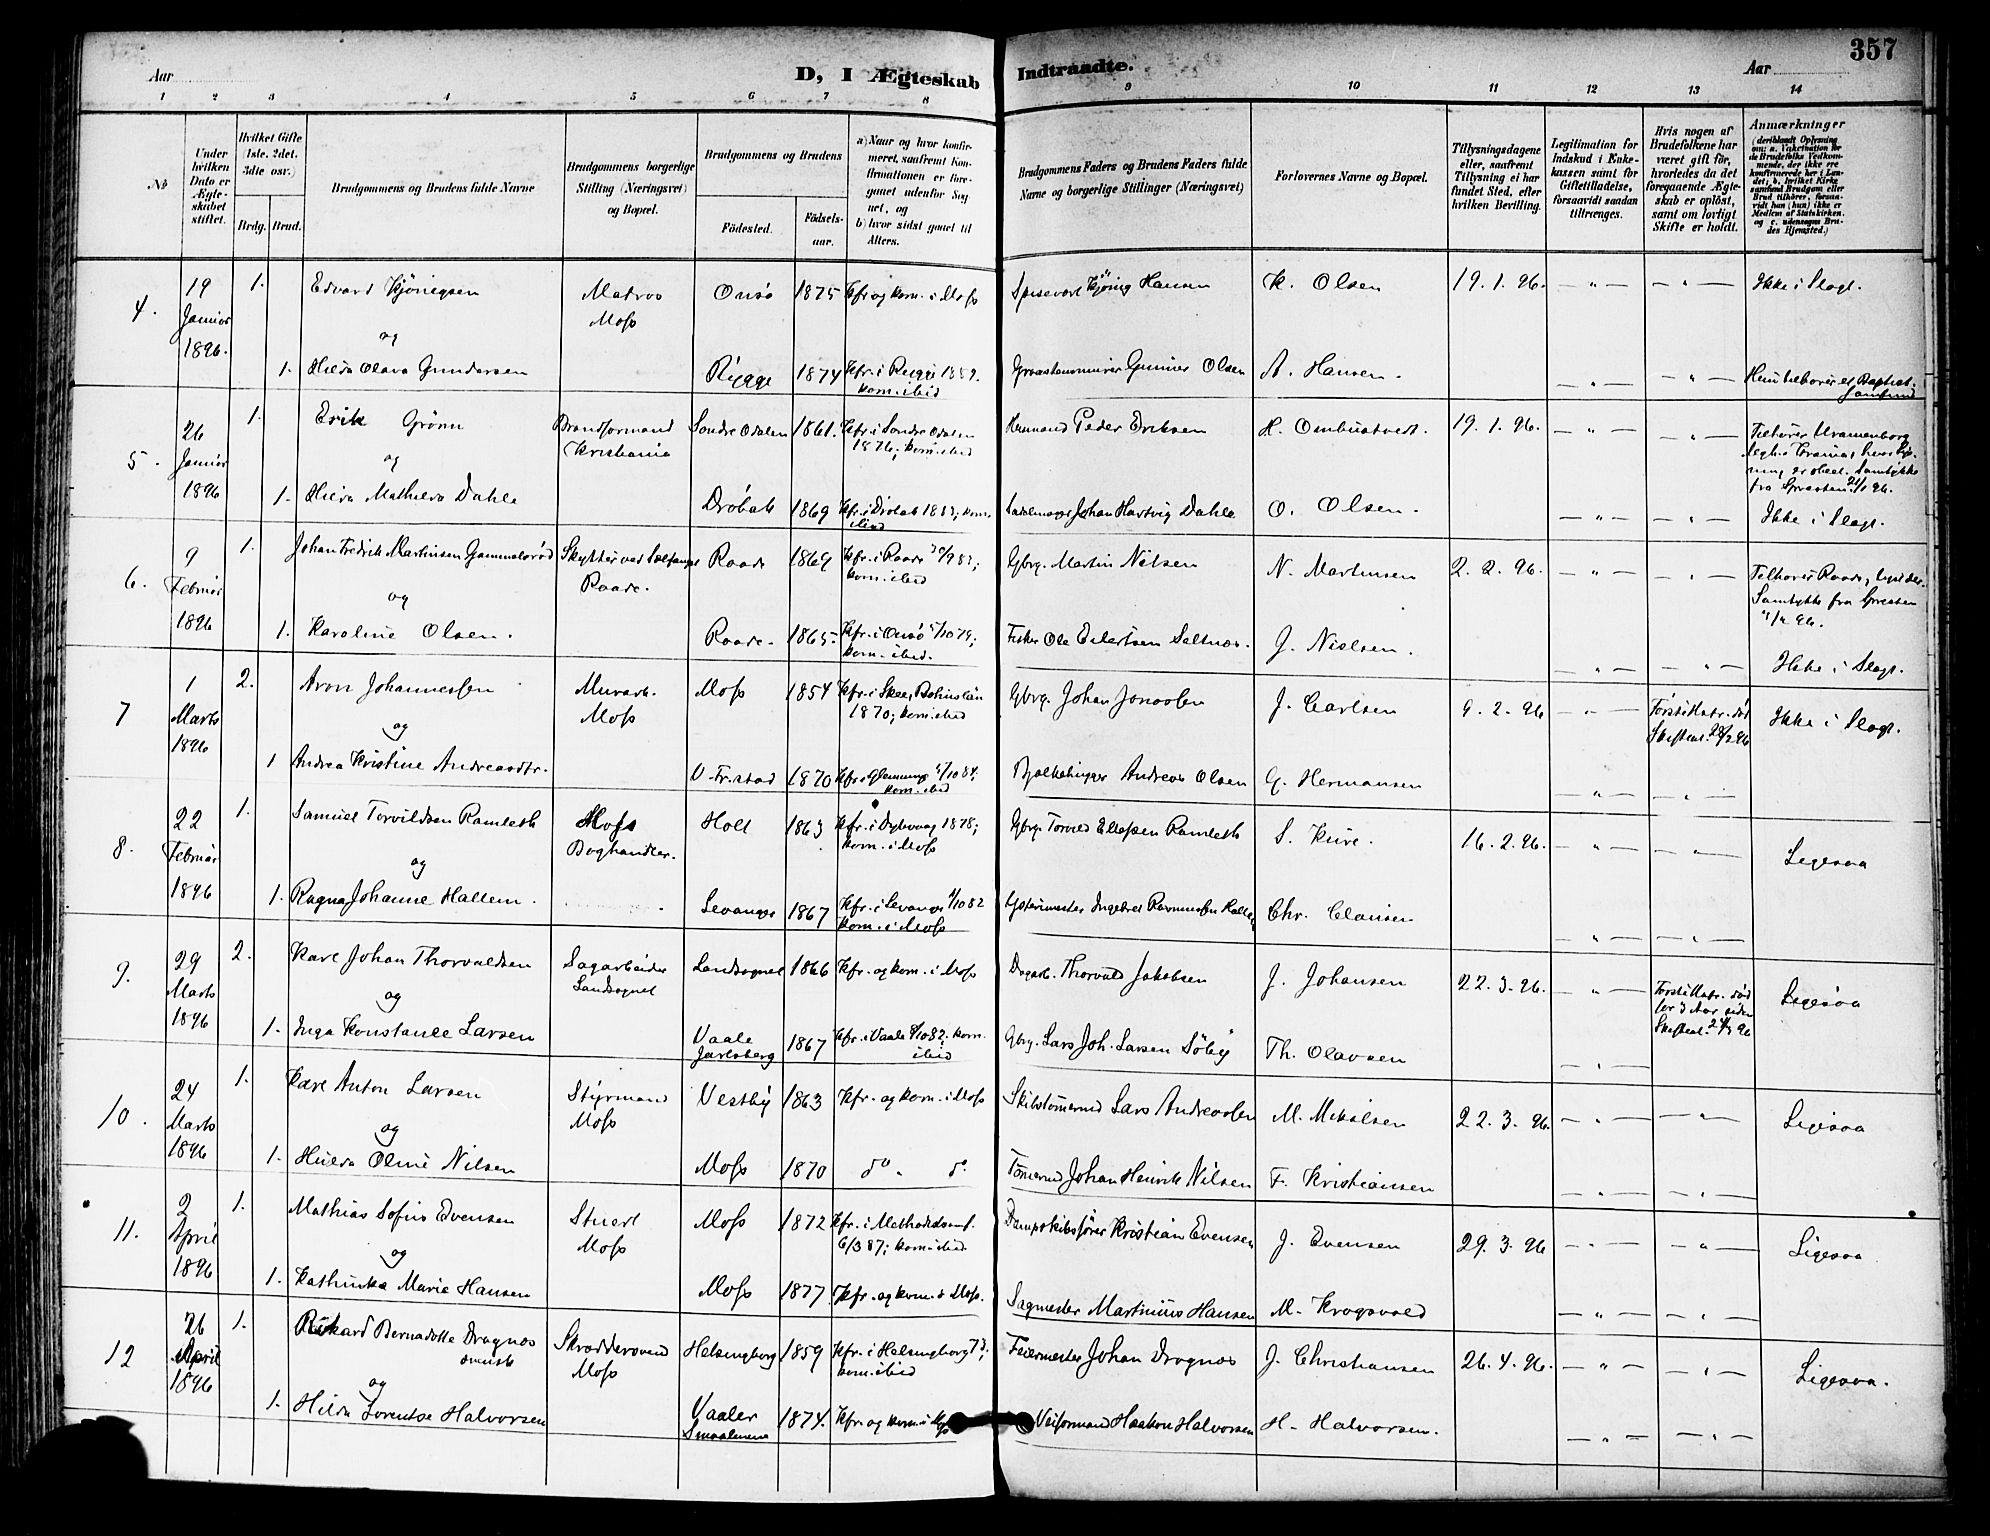 357
Aar
D, I Ægteskab Indtraadte.
Aar
1 2 3 4 5 6 7 8 9 10 11 12 13 14
No
Under hvilken Dato er Ægteskabet stiftet.
Hvilket Gifte (1ste. 2det. 3die osv.)
Brdg. Brud.
Brudgommens og Brudens fulde Navne
Brudgommens borgerlige Stilling (Næringsvei) og Bopæl.
Brudgommens og Brudens
Födested.
Födselsaar.
a) Naar og hvor konfirmeret, saafremt Konfirmationen er foregaaet udenfor Sognet, og
b) hvor sidst gaaet til Alters.
Brudgommens Faders og Brudens Faders fulde Navne og borgerlige Stillinger (Næringsvei)
Forlovernes Navne og Bopæl.
Tillysningsdagene eller, saafremt Tillysning ei har fundet Sted, efter hvilken Bevilling.
Legitimation for Indskud i Enkekassen samt for Giftetilladelse, forsaavidt saadan tiltrænges.
Hvis nogen af Brudefolkene har været gift før, hvorledes da det foregaaende Ægteskab er opløst, samt om lovligt Skifte er holdt.
Anmærkninger
4. 19 Januar 1896. 1. Edvard Kjönigsen Matros Moss Onsö 1875 Kfr. og kom. i Moss Spisevert Kjönig Hansen K. Olsen 19.1.96. — " — — " — Ikke i Slægt.
og
1. Hilda Olava Gundersen Rygge 1874 Kfr. i Rygge 1889. kom. ibid Gunnar Olsen A. Hansen. — " — — " —
5. 26 Januar 1896 1. Erik Grönn Brandformand Kristiania Söndre Odalen 1861. Kfr. i Söndre Odalen 1876; kom. ibid Husmand Peder Eriksen H. Ombustvedt. 19.1.96. — " — — " —
og
1. Hilda Mathilda Dahle Dröbak 1869 Kfr. i Dröbak 1883; kom. ibid Sadelmager Johan Hartvig Dahle O. Olsen. — " — — " — Ikke i Slægt.
6. 9 Februar 1896 1. Johan Fredrik Martinsen Gammelsröd Skytter ved Sælfangst Raade. Raade 1869 Kfr. i Raade 30/9 83; kom. ibid Gbrg. Martin Nilsen N. Martinsen 2.2.96. — " — — " — Tilhörer Raade, lyst der. Samtykke fra Presten
og
1. Karoline Olsen. Raade. 1865. Kfr. i Onsö 5/10 79; kom. ibid. Fisker Ole Eilertsen Saltnes. J. Nielsen. — " — — " — Ikke i Slægt.
7 1 Marts 1896 2. Aron Johannessen Murarb. Moss Moss 1854 Kfr. i Skee, Bohuslän 1870; kom. ibid Gbrg. Johan Jonassen J. Carlsen 9.2.96 — " — Förste Hustr. död Skifteat. 28/2 96 Ikke i Slægt.
og
1 Andrea Kristine Andreasdtr. V. Fr.stad 1870 Kfr. i Glemminge 5/10 84; kom. ibid Bjelkehugger Andreas Olsen G. Hermansen — " — — " —
8. 22 Februar 1896 1. Samuel Torvildsen Ramleth Moss Boghandler. Holt 1863 Kfr. i Dybvaag 1878; kom. i Moss Gbrg. Torvild Ellefsen Ramleth S. Kure. 16.2.96. — " — — " — Ligesaa
og
1. Ragna Johanne Hallem. Levanger 1867 Kfr. i Levanger 1/10 82 kom. i Moss Chr. Clausen — " — — " —
9. 29 Marts 1896 2. Karl Johan Thorvaldsen Sagarbeider Landsognet Landsognet 1866 Kfr. og kom. i Moss Dagarb. Thorvald Jakobsen J. Johansen 22.3.96. — " — Förste Hustr. död for 3 Aar siden Skifteat. 24/3 96 Ligesaa
og
1. Inga Konstance Larsen Vaale Jarlsberg 1867 Kfr. i Vaale 8/10 82; kom. ibid Gbrg. Lars Joh. Larsen Söby Th. Olavsen — " —
10. 24 Marts 1896 1. Karl Anton Larsen Styrmand Moss Vestby 1863 Kfr. og kom. i Moss Skibstömermd Lars Andreassen M. Mikalsen 22.3.96. — " — — " — Ligesaa
og
1. Hulda Oline Nilsen Moss 1870 do " do Tömermd Johan Henrik Nilsen F. Kristiansen — " — — " —
11. 2 April 1896 1. Mathias Sofus Evensen Stuert Moss Moss 1872 Kfr. i Methodistsamf. 6/3 87; kom. ibid Dampskibsförer Kristian Evensen J. Evensen 29.3.96 — " — — " — Ligesaa
og
1. Kathinka Marie Hansen Moss 1877 Kfr. og kom. i Moss. Sagmester Martinius Hansen M. Krogsvold — " — — " —
12 26 April 1896 1. Rikard Bernadotte Dragnæs svensk Skræddersvend Moss Helsingborg 1859 Kfr. i Helsingborg 73; kom. ibid Feiermester Johan Dragnæs J. Christiansen 26.4.96. — " — — " — Ligesaa.
og
1. Hilda Lorentse Halvorsen Vaaler Smaalenene 1874. Kfr. og kom. i Moss Veiformand Haakon Halvorsen H. Halvorsen. — " — — " —